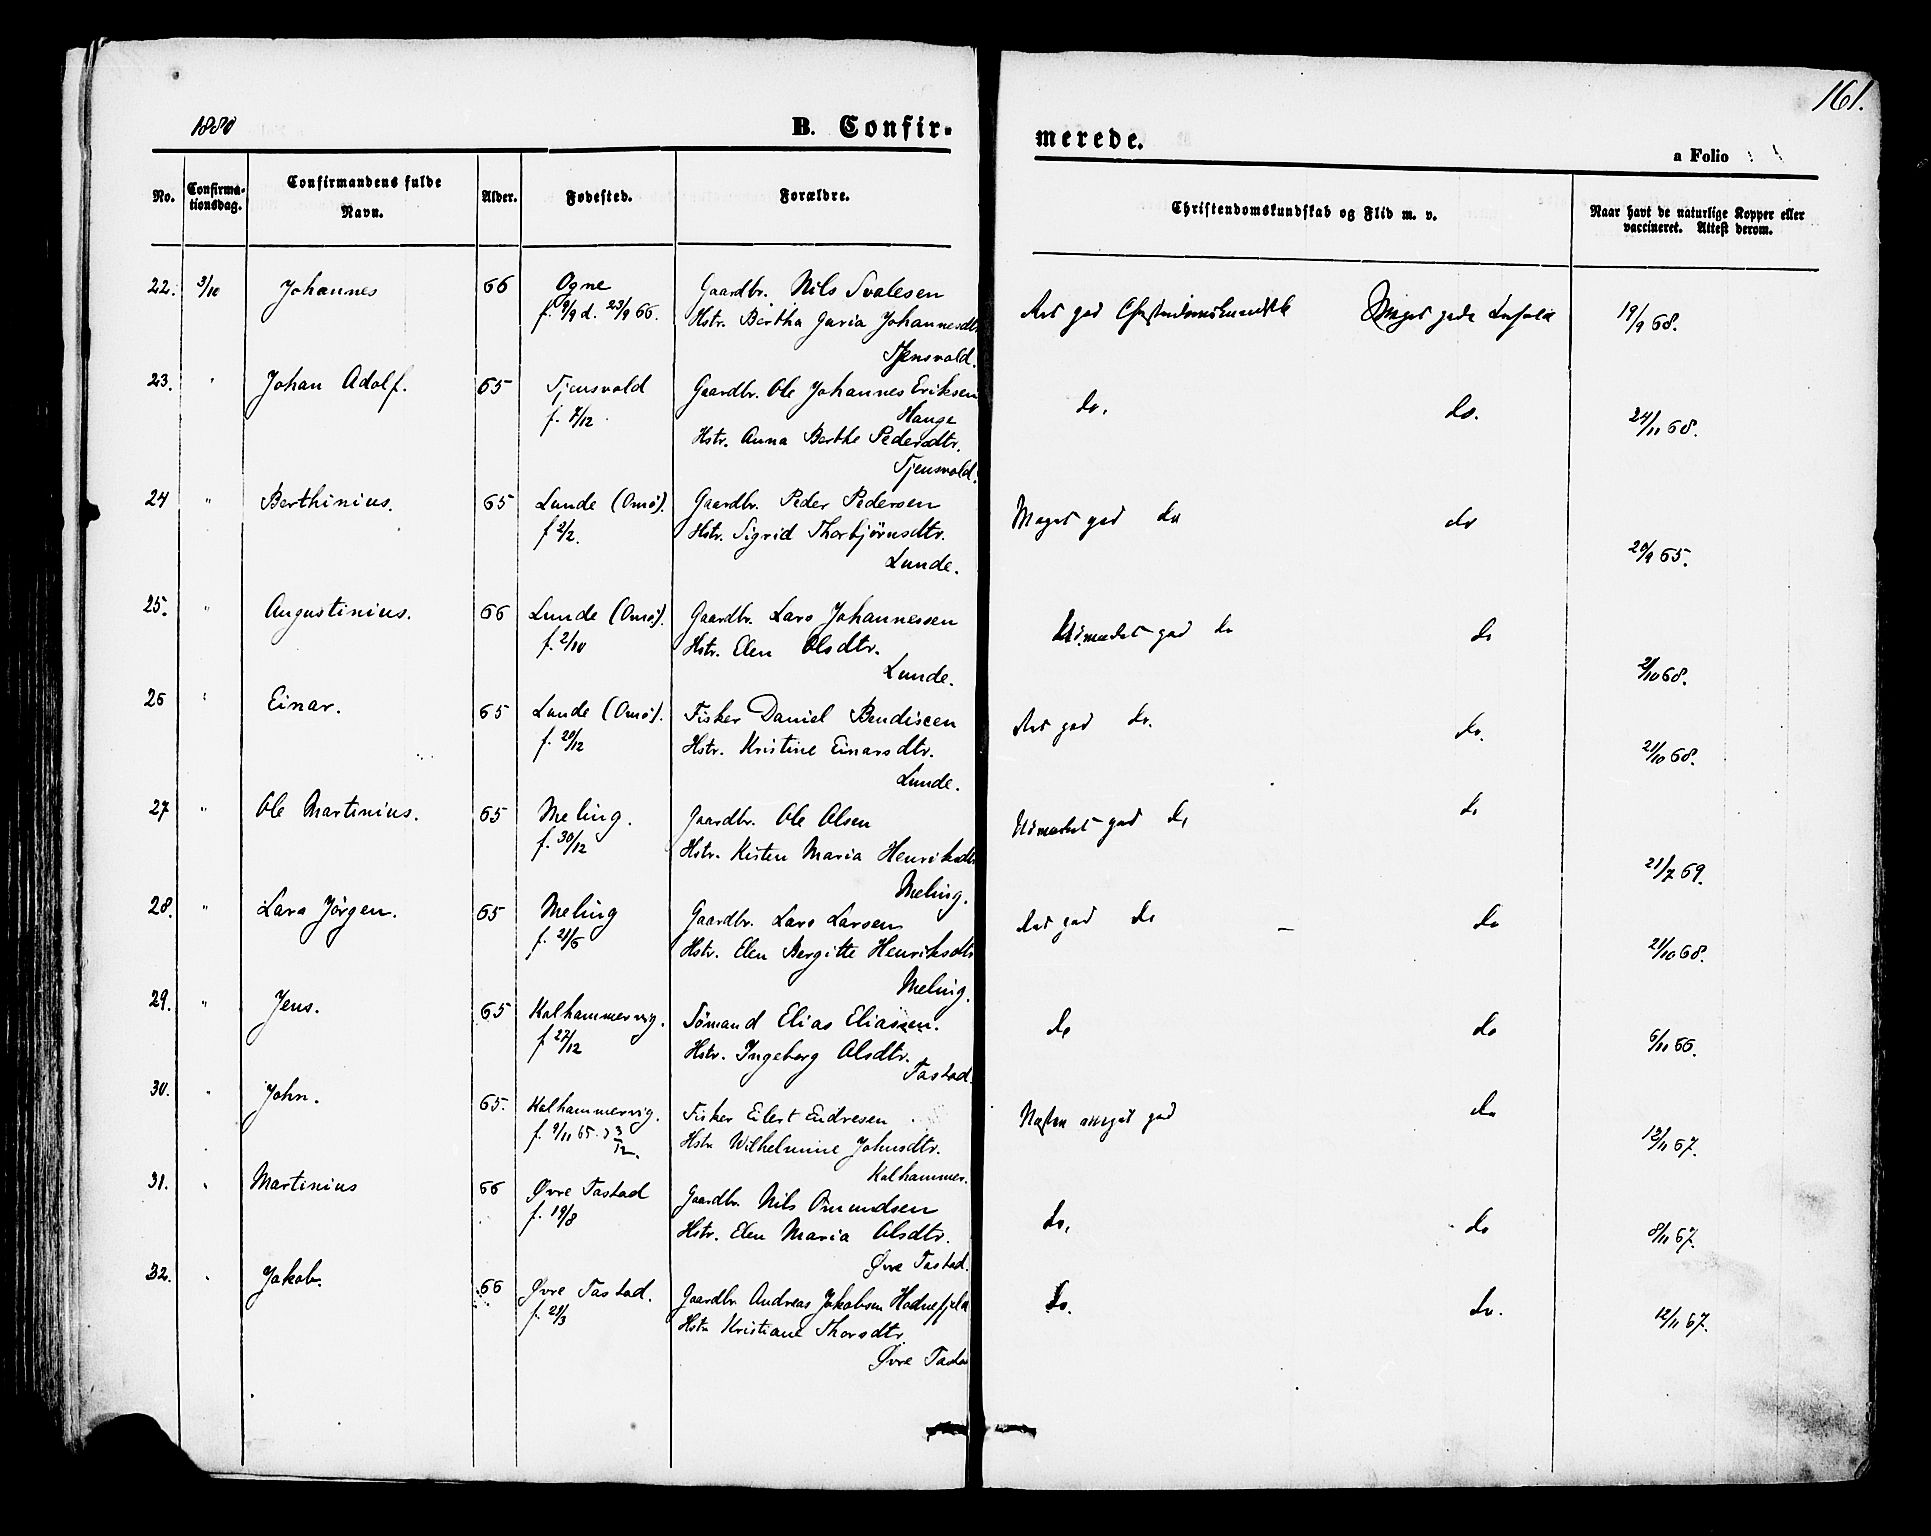 161.
1880 B. Confirmerede. a Folio
No. Confirmationsdag. Confirmandens fulde Navn. Alder. Fødested. Forældre. Christendomskundskab og Flid m. v. Naar havt de naturlige Kopper eller vaccineret. Attest derom.
22. 3/10 Johannes 66 Ogne Gaardbr. Nils Svalesen
f. 9/9 d. 23/9 66. Hstr. Bertha Johannesdtr. 19/9 68.
Tjensvold.
23. " Johan Adolf. 65 Tjensvold Gaardbr. Ole Johannes Eriksen do. do. 24/11 68.
f. 7/12. Hauge
Hstr. Anna Berthe Pedersdtr.
Tjensvold.
24 " Berthinius. 65 Lunde (Omø). Gaardbr. Peder Pedersen Meget god do do
f 2/2. Hstr. Sigrid Thorbjørnsdtr. 20/9 65.
Lunde.
25. " Augustinius. 66 Lunde (Omø). Gaardbr. Lars Johannessen Udmærket god do do
f. 2/10 Hstr. Elen Olsdtr. 2/10 68.
Lunde.
26 " Einar. 65 Lunde (Omø). Fisker Daniel Bendixen god do. do.
f. 20/12 Hstr. Kristine Einarsdtr. 21/10 68.
Lunde.
27 " Ole Martinius. 65 Meling. Gaardbr. Ole Olsen Udmærket god do do
f. 30/12 Hstr. Kisten Maria Henriksdtr. 21/7 69.
Meling.
28. " Lars Jørgen. 65 Meling Gaardbr. Lars Larsen god do – do
f. 21/6 Hstr. Elen Bergitte Henriksdtr 21/10 68.
Meling.
29. " Jens. 65 Kalhammervig. Sømand Elias Eliassen. do do
f 27/12 Hstr. Ingeborg Olsdtr. 6/11 66.
Tastad.
30. " John. 65. Kalhammervig. Fisker Eilert Endresen Næsten meget god do
f. 9/11 65. d 3/12. Hstr Wilhelmine Johnsdtr. 13/11 67.
Kalhammer.
31. " Martinius 66 Øvre Tastad Gaardbr. Nils Omundsen do. do
f. 19/8 Hstr. Elen Maria Olsdtr. 8/11 67.
Øvre Tastad.
32. " Jakob. 66 Øvre Tastad. Gaardbr Andreas Jakobsen Hodnefjeld do. do.
f. 21/3 Hstr Kristiane Thorsdtr. 12/11 67.
Øvre Tastad